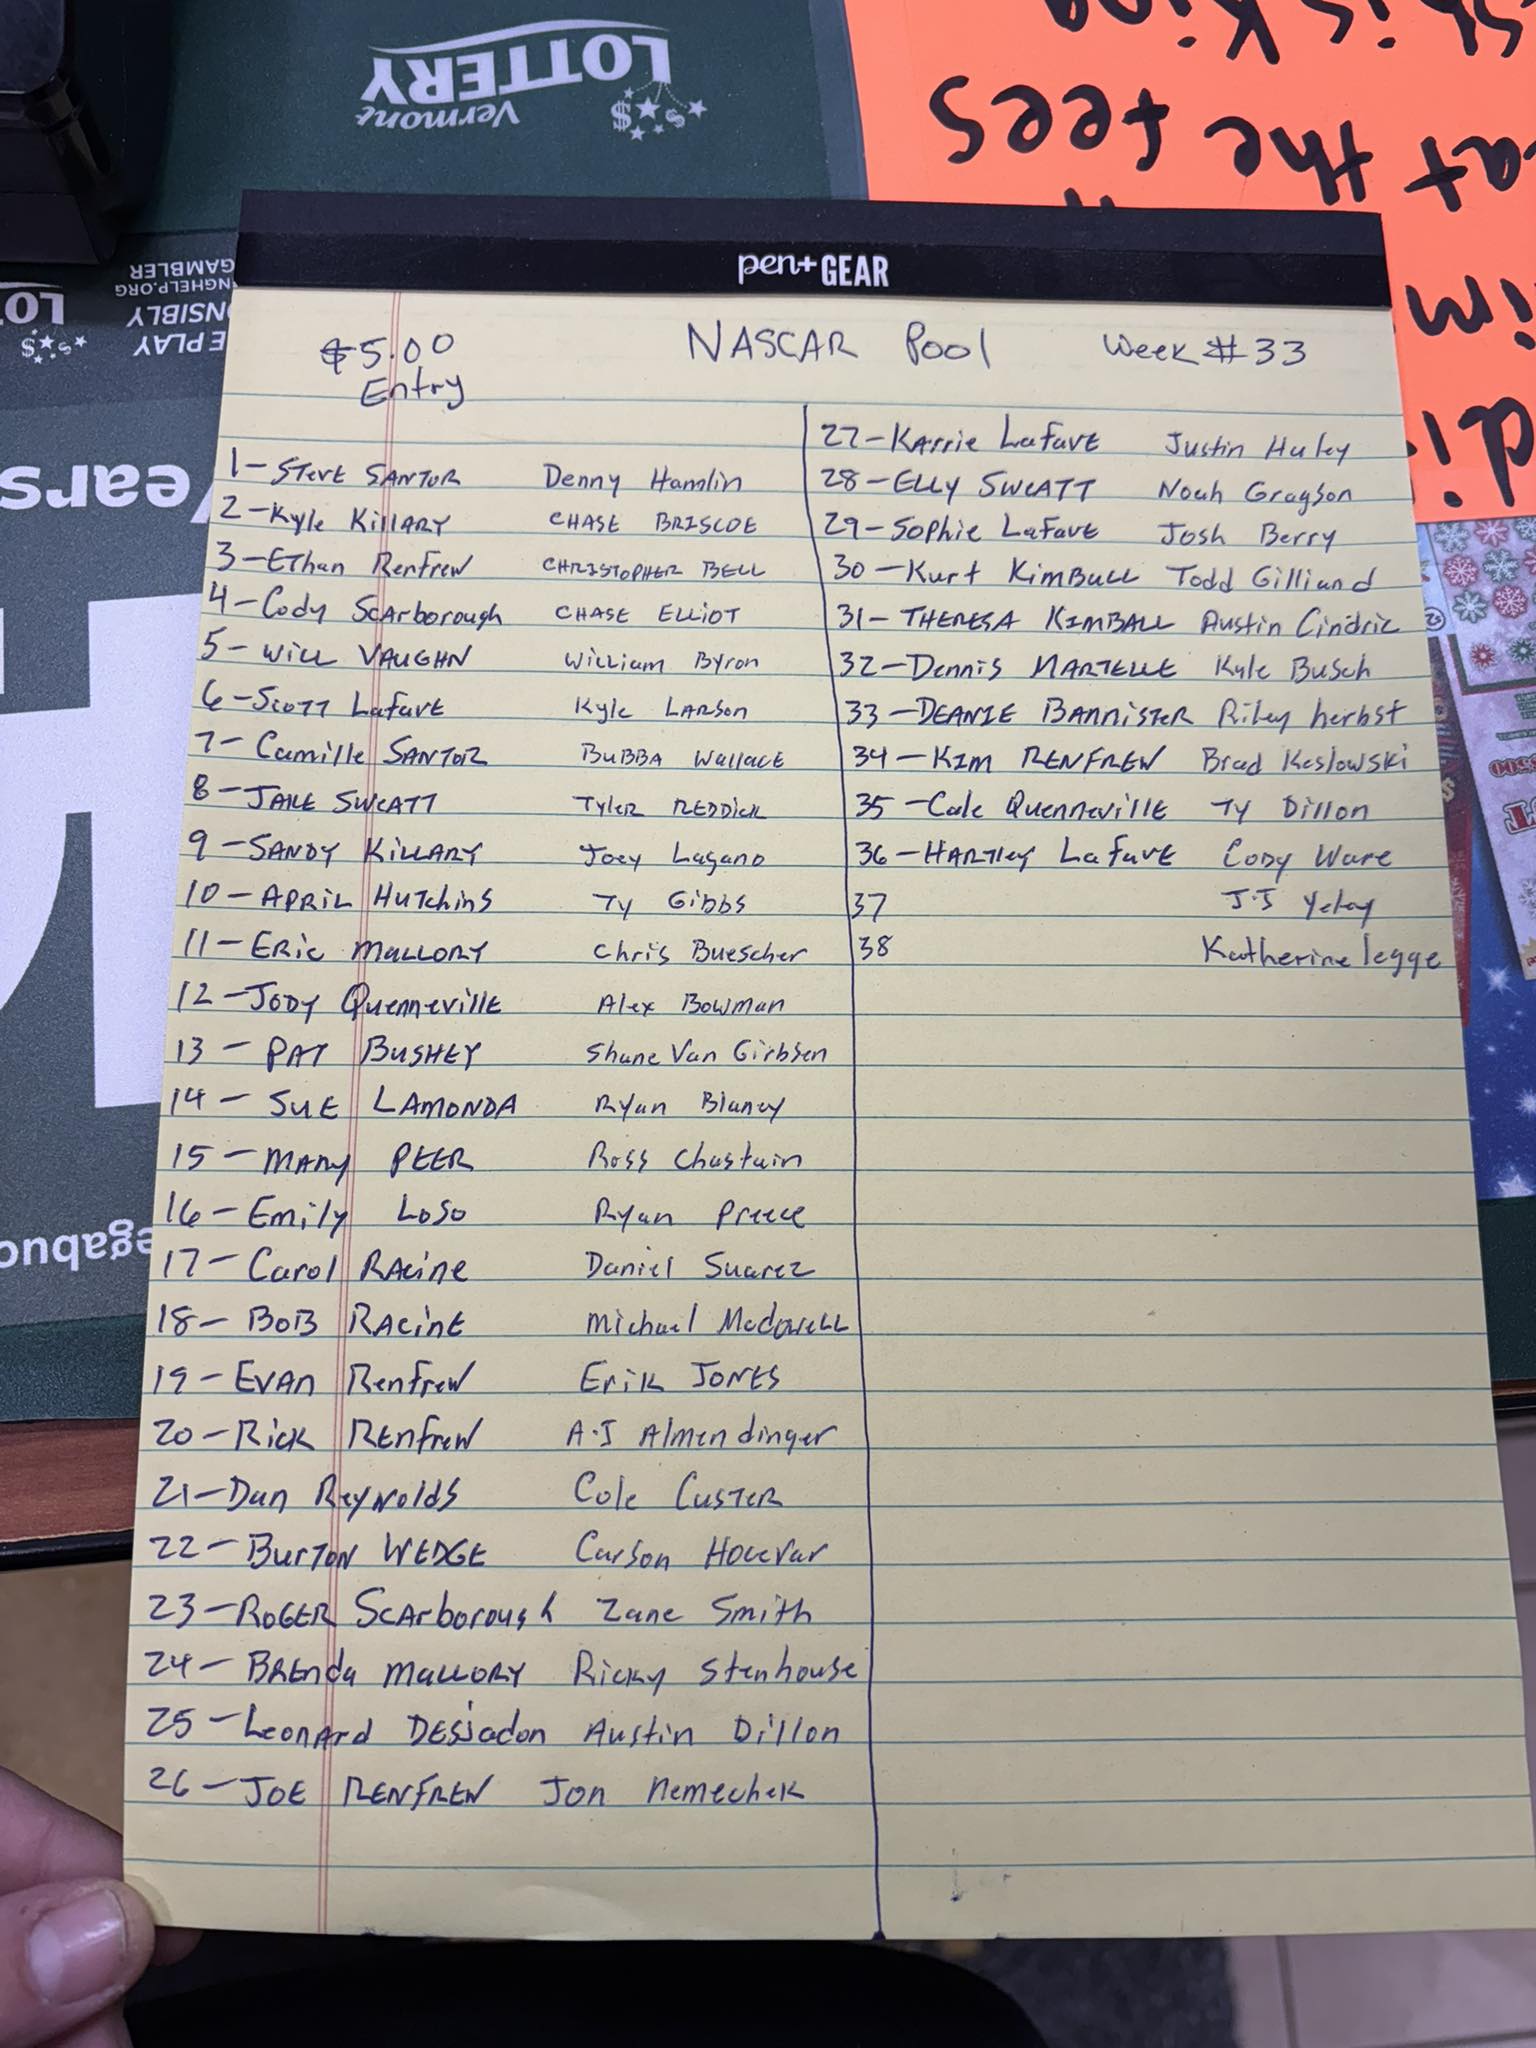 Vermont
LOTTERY
at the fees
GAMBLER
NGHELP.ORG
NSIBLY
E PLAY
pen+GEAR
$5.00
Entry
NASCAR Pool Week #33
1-Steve SANTOR Denny Hamlin
2-Kyle Killary CHASE BRISCOE
3-Ethan Renfrew CHRISTOPHER BELL
4-Cody Scarborough CHASE ELLIOT
5-Will VAUGHN William Byron
6-Scott Lafave Kyle Larson
7-Camille SANTOR Bubba Wallace
8-JAKE SWEATT Tyler REDDICK
9-SANDY KILLARY Joey Lagano
10-APRIL Hutchins Ty Gibbs
11-Eric MALLORY Chris Buescher
12-Jody Quenneville Alex Bowman
13-PAT BUSHEY Shane Van Girbsen
14-SUE LAMONDA Ryan Blaney
15-MARY PEER Ross Chastain
16-Emily Loso Ryan Preece
17-Carol RAcine Daniel Suarez
18-BOB RAcine Michael McdowELL
19-EVAN Renfrew Erik JONES
20-Rick RENfrew A.J Almendinger
21-Dan Reynolds Cole Custer
22-Burton WEDGE Carson Hocevar
23-ROGER Scarborough Zane Smith
24-BRENda MALLORY Ricky Stenhouse
25-Leonard DESJadon Austin Dillon
26-JOE RENFREW Jon Nemechek
27-Karrie Lafave Justin Haley
28-ELLY SWEATT Noah Gragson
29-Sophie Lafave Josh Berry
30-Kurt KimBall Todd Gilliand
31-THERESA KIMBALL Austin Cindric
32-Dennis MARTELLE Kyle Busch
33-DEANIE BANNISTER Riley herbst
34-KIM RENFREW Brad Keslowski
35-Cale Quenneville Ty Dillon
36-HARTley Lafave Cody Ware
37 J.J Yeley
38 Katherine legge